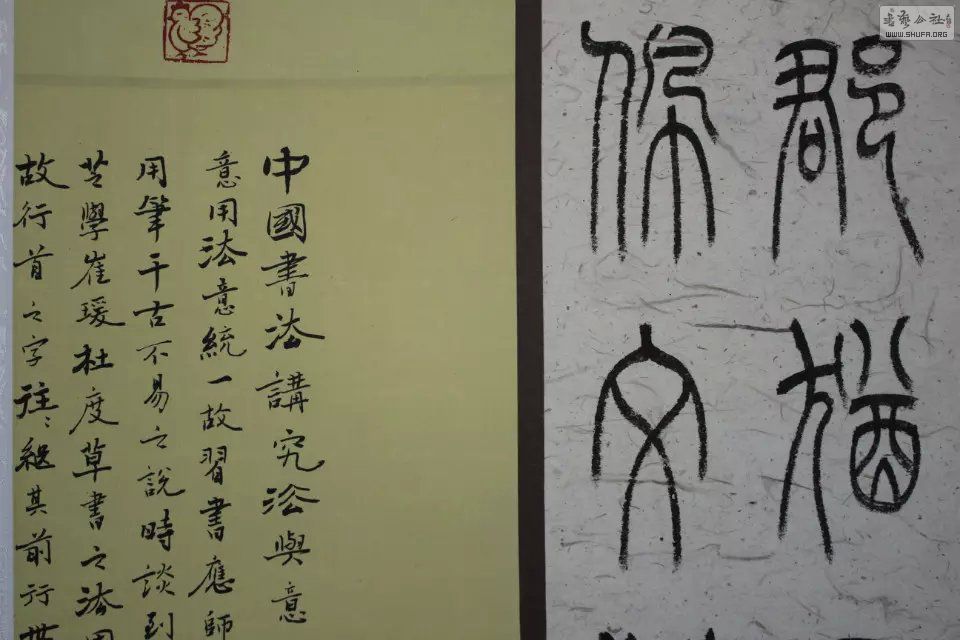 郡猶
保文
中國書法講究法與意
意用法意統一故習書應師
用筆千古不易之說時談到
芝學崔瑗杜度草書之法因
故行首之字往〻繼其前行世
書藝公社
WWW.SHUFA.ORG